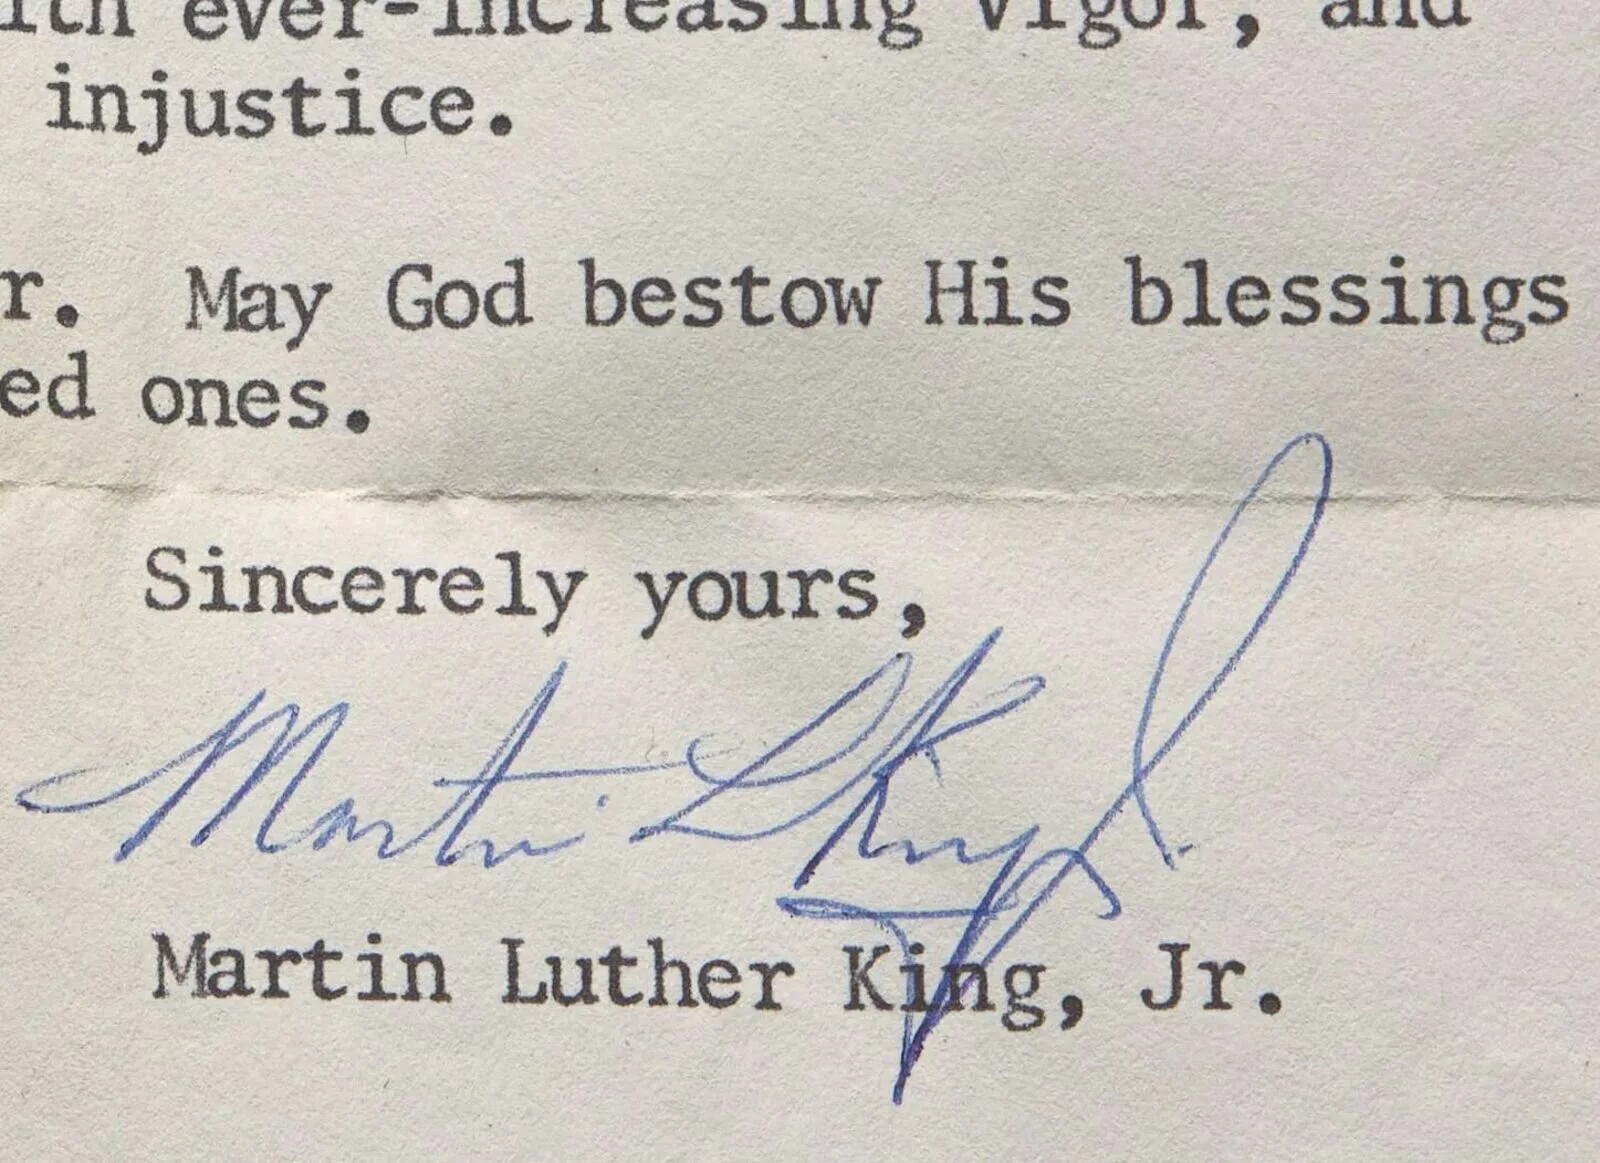 ith ever-increasing vigor, and
injustice.
r. May God bestow His blessings
ed ones.
Sincerely yours,
Martin L King Jr.
Martin Luther King, Jr.